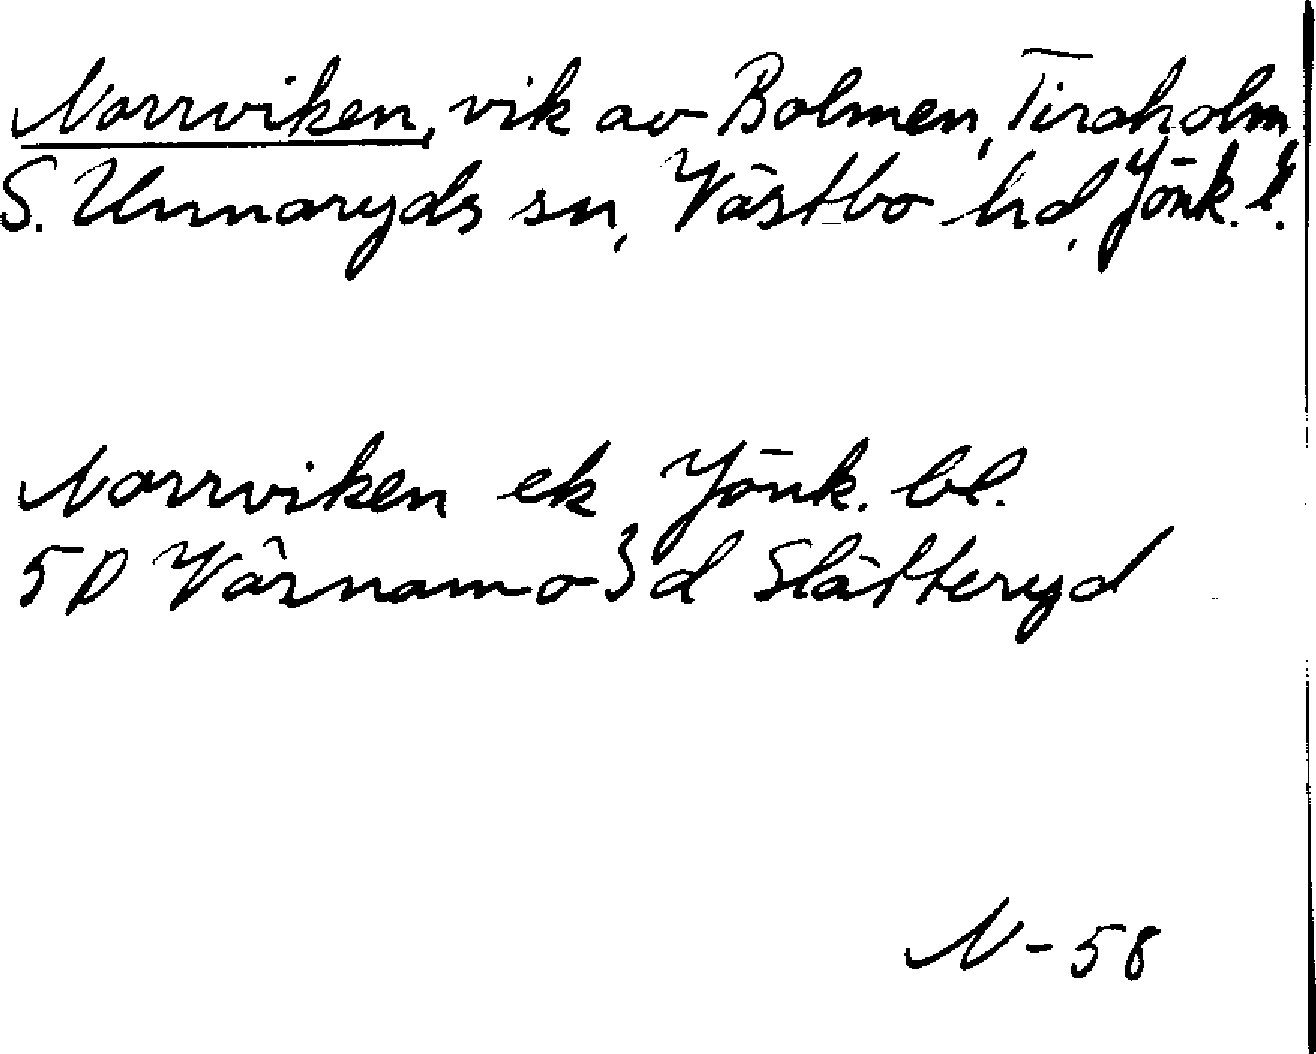 Norrviken, vik av Bolmen, Tiraholm
S. Unnaryds sn, Västbo hd, Jönk. l.
Norrviken ek Jönk. bl.
5D Värnamo 3d Slätteryd
N-58